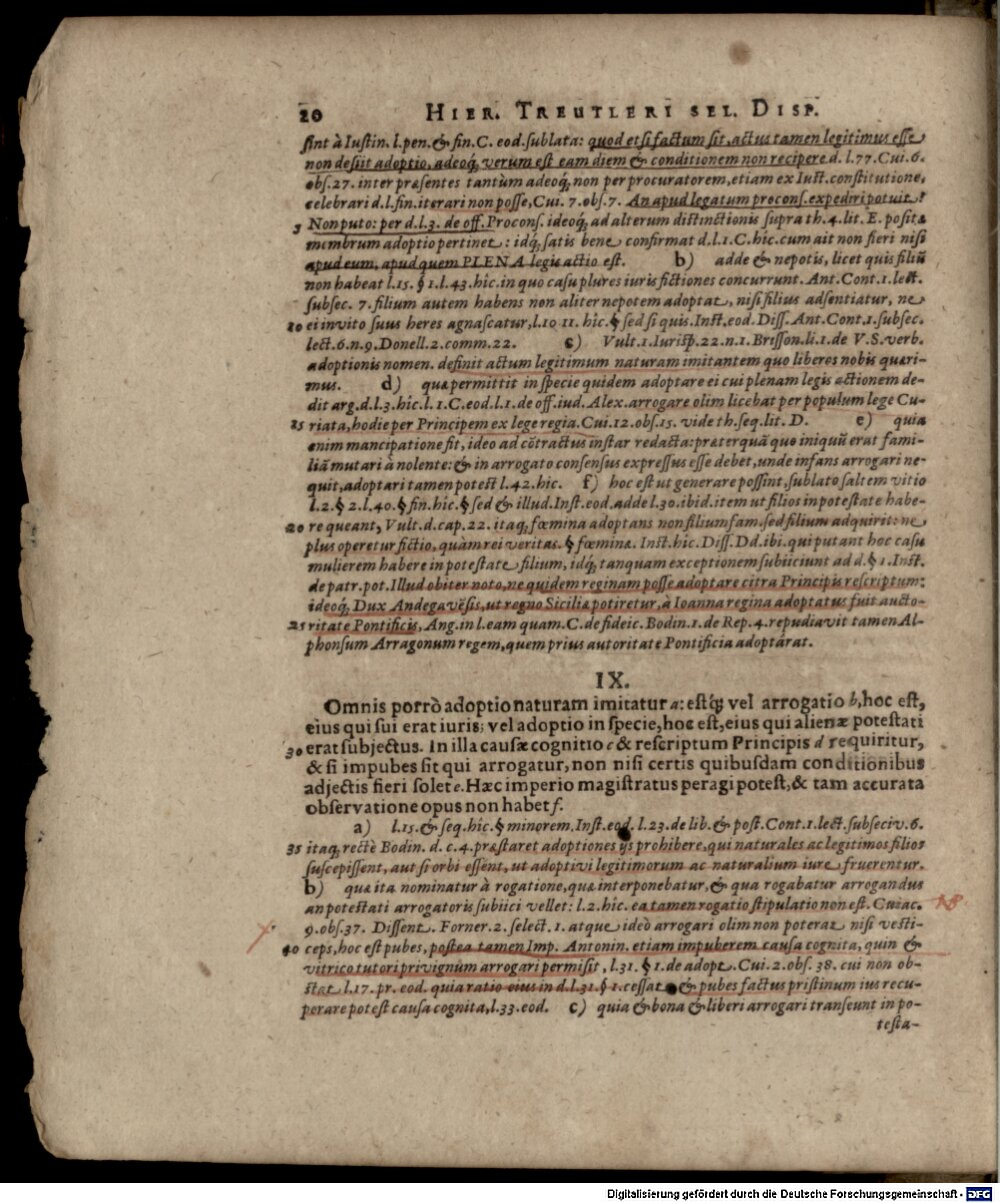 20 HIER. TREUTLERI SEL. DISP.
sint à Iustin. l. pen. & fin. C. eod. sublata: quod etsi factum sit, actus tamen legitimus esse
non desiit adoptio, adeoq́, verum est eam diem & conditionem non recipere d. l. 77. Cui. 6.
obs. 27. inter præsentes tantùm adeoq́, non per procuratorem, etiam ex Iust. constitutione,
celebrari d. l. fin. iterari non posse, Cui. 7. obs. 7. An apud legatum procons. expediri potuit?
5 Non puto: per d. l. 3. de off. Procons. ideoq́, ad alterum distinctionis supra th. 4. lit. E. positæ
membrum adoptio pertinet: idq́, satis bene confirmat d. l. 1. C. hîc. cum ait non fieri nisi
apud eum, apud quem PLENA legis actio est. b) adde & nepotis, licet quis filiũ
non habeat l. 15. § 1. l. 43. hîc. in quo casu plures iuris fictiones concurrunt. Ant. Cont. 1. lect.
subsec. 7. filium autem habens non aliter nepotem adoptat, nisi filius adsentiatur, ne
10 ei invito suus heres agnascatur, l. 10 11. hîc. § sed si quis. Inst. eod. Diss. Ant. Cont. 1. subsec.
lect. 6. n. 9. Donell. 2. comm. 22. c) Vult. 1. Iurisp. 22. n. 1. Brisson. li. 1. de V. S. verb.
adoptionis nomen. definit actum legitimum naturam imitantem quo liberos nobis quæri-
mus. d) quæ permittit in specie quidem adoptare ei cui plenam legis actionem de-
dit arg. d. l. 3. hîc. l. 1. C. eod. l. 1. de off. iud. Alex. arrogare olim licebat per populum lege Cu-
15 riata, hodie per Principem ex lege regia. Cui. 12. obs. 15. vide th. seq. lit. D. e) quia
enim mancipatione fit, ideo ad cõtractus instar redacta: præterquã quo iniquũ erat fami-
liã mutari à nolente: & in arrogato consensus expressus esse debet, unde infans arrogari ne-
quit, adoptari tamen potest l. 42. hic. f) hoc est ut generare possint, sublato saltem vitio
l. 2. § 2. l. 40. § fin. hic. § sed & illud. Inst. eod. adde l. 30. ibid. item ut filios in potestate habe-
20 re queant, Vult. d. cap. 22. itaq́, fœmina adoptans non filiumfam. sed filium adquirit: ne
plus operetur fictio, quàm rei veritas. § fœminæ. Inst. hic. Diss. Dd. ibi. qui putant hoc casu
mulierem habere in potestate filium, idq́, tanquam exceptionem subiiciunt ad d. § 1. Inst.
de patr. pot. Illud obiter noto, ne quidem reginam posse adoptare citra Principis rescriptum:
ideoq́, Dux Andegavẽsis, ut regno Siciliæ potiretur, à Ioanna regina adoptatus fuit aucto-
25 ritate Pontificis, Ang. in l. eam quam. C. de fideic. Bodin. 1. de Rep. 4. repudiavit tamen Al-
phonsum Arragonum regem, quem prius autoritate Pontificia adoptárat.
IX.
Omnis porrò adoptio naturam imitatur a: estq́; vel arrogatio b, hoc est,
eius qui sui erat iuris; vel adoptio in specie, hoc est, eius qui alienæ potestati
30 erat subjectus. In illa causæ cognitio c & rescriptum Principis d requiritur,
& si impubes sit qui arrogatur, non nisi certis quibusdam conditionibus
adjectis fieri solet e. Hæc imperio magistratus peragi potest, & tam accurata
observatione opus non habet f.
a) l. 15. & seq. hîc. § minorem. Inst. eod. l. 23. de lib. & post. Cont. 1. lect. subseciv. 6.
35 itaq́, rectè Bodin. d. c. 4. præstaret adoptiones ijs prohibere, qui naturales ac legitimos filios
suscepissent, aut si orbi essent, ut adoptivi legitimorum ac naturalium iure fruerentur.
b) quæ ita nominatur à rogatione, quæ interponebatur, & qua rogabatur arrogandus
an potestati arrogatoris subiici vellet: l. 2. hic. ea tamen rogatio stipulatio non est. Cuiac. NB
9. obs. 37. Dissent. Forner. 2. select. 1. atque ideò arrogari olim non poterat nisi vesti-
40 ceps, hoc est pubes, postea tamen Imp. Antonin. etiam impuberem causa cognita, quin &
vitrico tutori privignum arrogari permisit, l. 31. § 1. de adopt. Cui. 2. obs. 38. cui non ob-
stat l. 17. pr. eod. quia ratio eius in d. l. 31. § 1. cessat & pubes factus pristinum ius recu-
perare potest causa cognita, l. 33. eod. c) quia & bona & liberi arrogari transeunt in po-
testa-
Digitalisierung gefördert durch die Deutsche Forschungsgemeinschaft - DFG